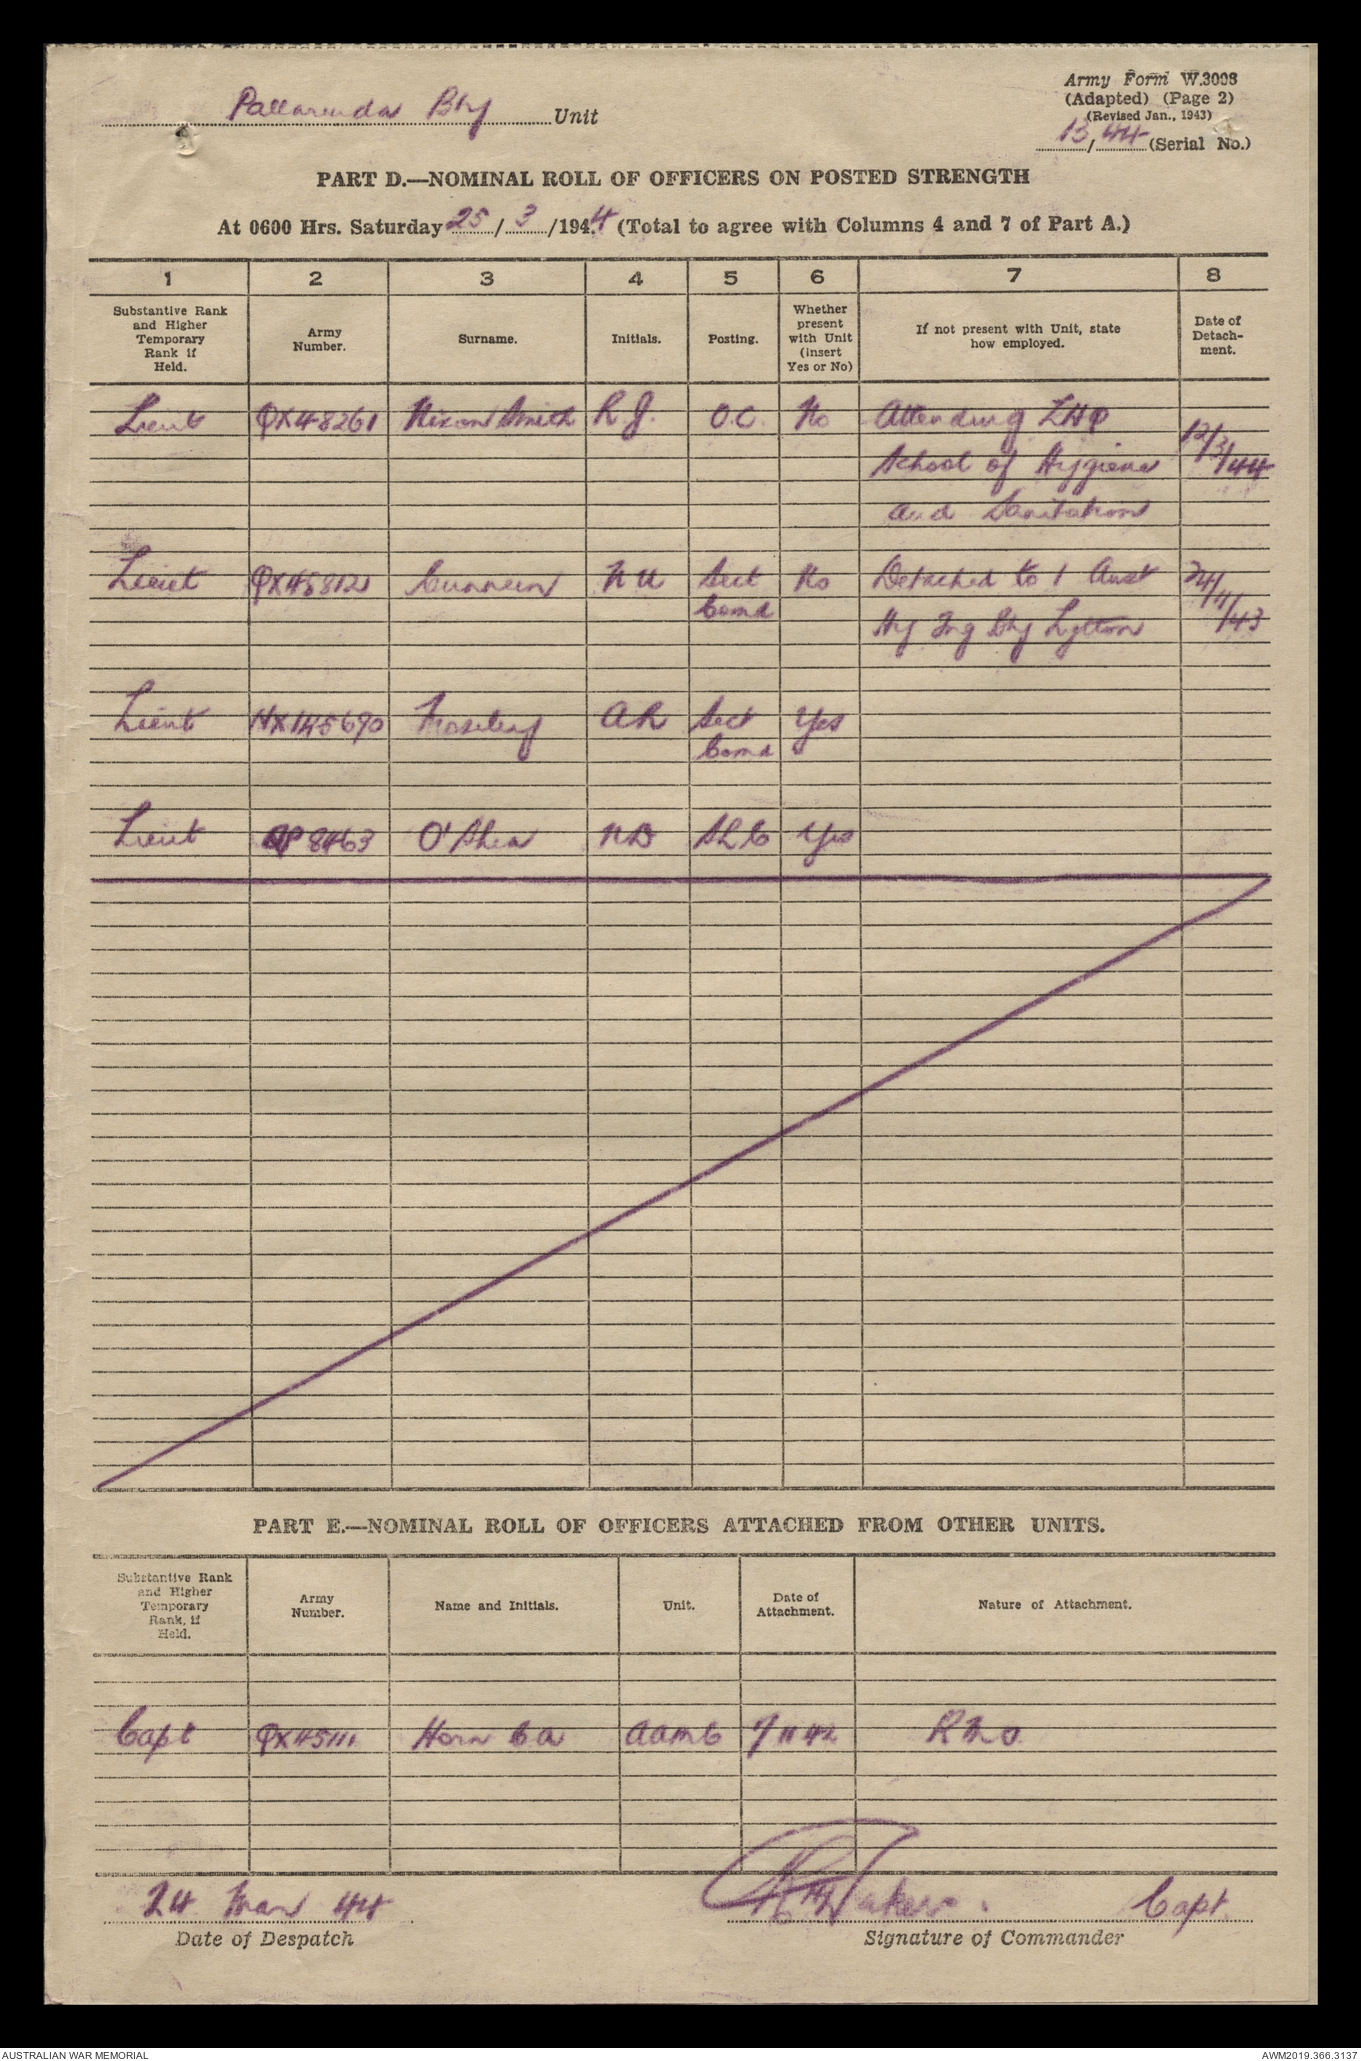 Pallarenda Bty Unit
Army Form W.3008
(Adapted) (Page 2)
(Revised Jan., 1943)
13/44 (Serial No.)
PART D.—NOMINAL ROLL OF OFFICERS ON POSTED STRENGTH
At 0600 Hrs. Saturday 25/3/1944 (Total to agree with Columns 4 and 7 of Part A.)
1 2 3 4 5 6 7 8
Substantive Rank and Higher Temporary Rank if Held. Army Number. Surname. Initials. Posting. Whether present with Unit (insert Yes or No) If not present with Unit, state how employed. Date of Detach-ment.
Lieut QX48261 Nixon Smith R J. O.C. No Attending LHQ 12/3/44
School of Hygiene
and Sanitation
Lieut QX45812 Cunneen Sect No Detached to 1 Aust 24/11/43
Comd Hy Trg Bty Lytton
Lieut NX145690 Moseley A R Sect Yes
Comd
Lieut QP8463 O'Shea N D SLC Yes
PART E.—NOMINAL ROLL OF OFFICERS ATTACHED FROM OTHER UNITS.
Substantive Rank and Higher Temporary Rank, if Held. Army Number. Name and Initials. Unit. Date of Attachment. Nature of Attachment.
Capt QX45111 Horn C A AAMC 7 11 42 RMO.
24 Mar 44 Capt.
Date of Despatch Signature of Commander
AUSTRALIAN WAR MEMORIAL AWM2019.366.3137